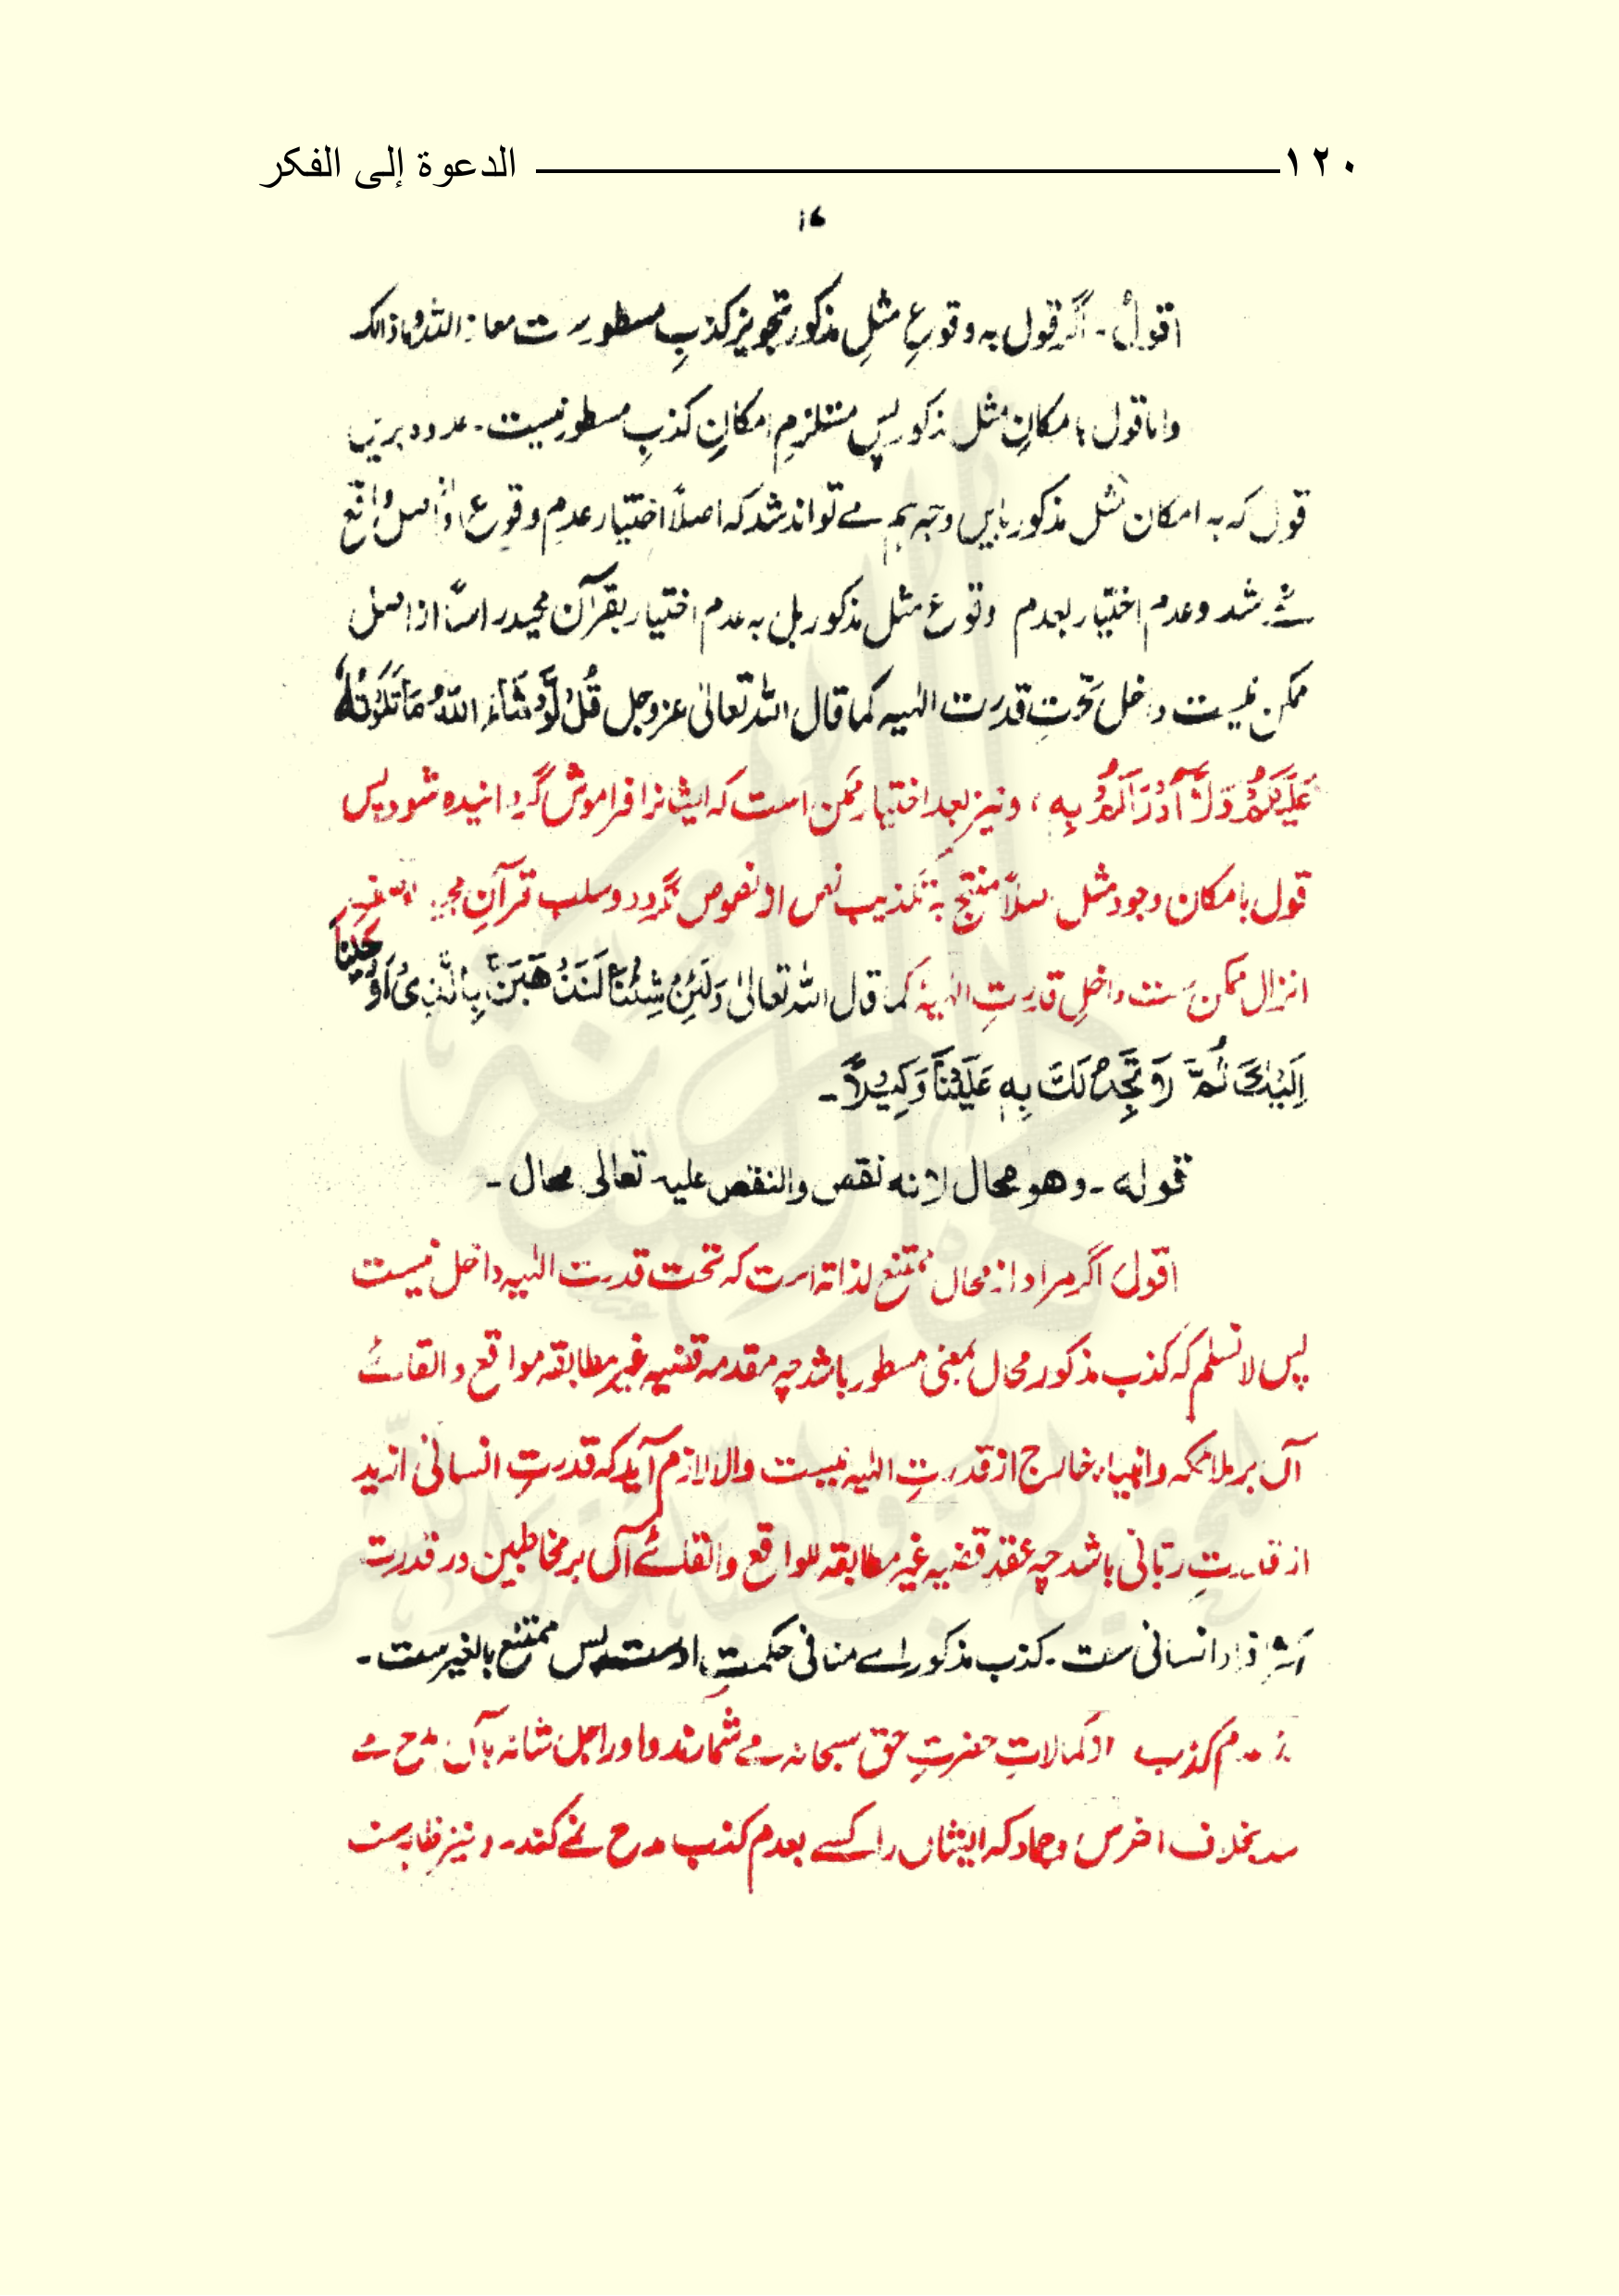 ١٢٠ الدعوة إلى الفكر
١٧
اقول۔ اگر قول به وقوعِ مثلِ مذکور تجویز کذبِ مسطور ست معاذ اللہ
واما قول بامکانِ مثل مذکور پس مستلزمِ امکانِ کذبِ مسطور نیست۔ علاوه بریں
قول که به امکان مثل مذکور بایں وجه ہم مے تواند شد که اصلاً اختیار عدم وقوع واقع
شد وعدم اختیار بعدم وقوع مثل مذکور بل به عدم اختیار بقرآن مجید راساً از اصل
ممکن نیست داخل تحتِ قدرت الٰہیه کما قال اللہ تعالیٰ عز وجل قُلْ لَّوْ شَآءَ اللّٰهُ مَا تَلَوْتُهٗ
عَلَيْكُمْ وَلَآ اَدْرٰىكُمْ بِهٖ، ونیز بعد اختیار ممکن است که ایشانرا فراموش گردانیده شود پس
قول بامکان وجود مثل اصلاً منتج به تکذیب نص از نصوص نگردد وسلب قرآنِ مجید
انزال ممکن ست داخلِ قدرتِ الٰہیه کما قال اللہ تعالیٰ وَلَئِنْ شِئْنَا لَنَذْهَبَنَّ بِالَّذِیْ اَوْحَيْنَآ
اِلَيْكَ ثُمَّ لَا تَجِدُ لَكَ بِهٖ عَلَيْنَا وَكِيْلًا۔
قوله۔ وهو محال لانه نقص والنقص علیه تعالی محال۔
اقول اگر مراد از محال ممتنع لذاته است که تحت قدرت الٰہیه داخل نیست
پس لا نسلم که کذب مذکور محال بمعنی مسطور باشد چه مقدمه قضیه غیر مطابقه مواقع والقائے
آں بر ملائکه وانبیاء خارج از قدرتِ الٰہیه نیست والا لازم آید که قدرتِ انسانی ازید
از قدرتِ ربّانی باشد چه عقدِ قضیه غیر مطابقه للواقع والقائے آں بر مخاطبین در قدرت
اکثر افراد انسانی ست۔ کذب مذکور اے منافی حکمتِ اوست پس ممتنع بالغیر ست۔
عدم کذب از کمالاتِ حضرتِ حق سبحانه مے شمارند واو را جل شانه بآں مدح مے
بخلاف اخرس وجماد که ایشاں را کسے بعدم کذب مدح نمے کند۔ ونیز ظاہر ست